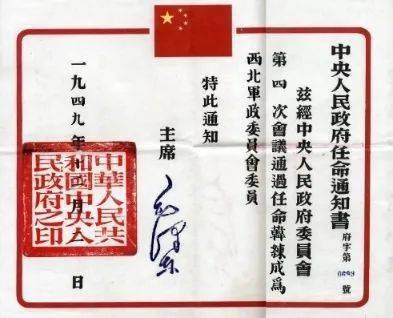 中央人民政府任命通知書
府字第 號
茲經中央人民政府委員會
第四次會議通過任命韓練成爲
西北軍政委員會委員
特此通知
主席
毛澤東
一九四九年十二月 日
中華人民共
和國中央人
民政府之印